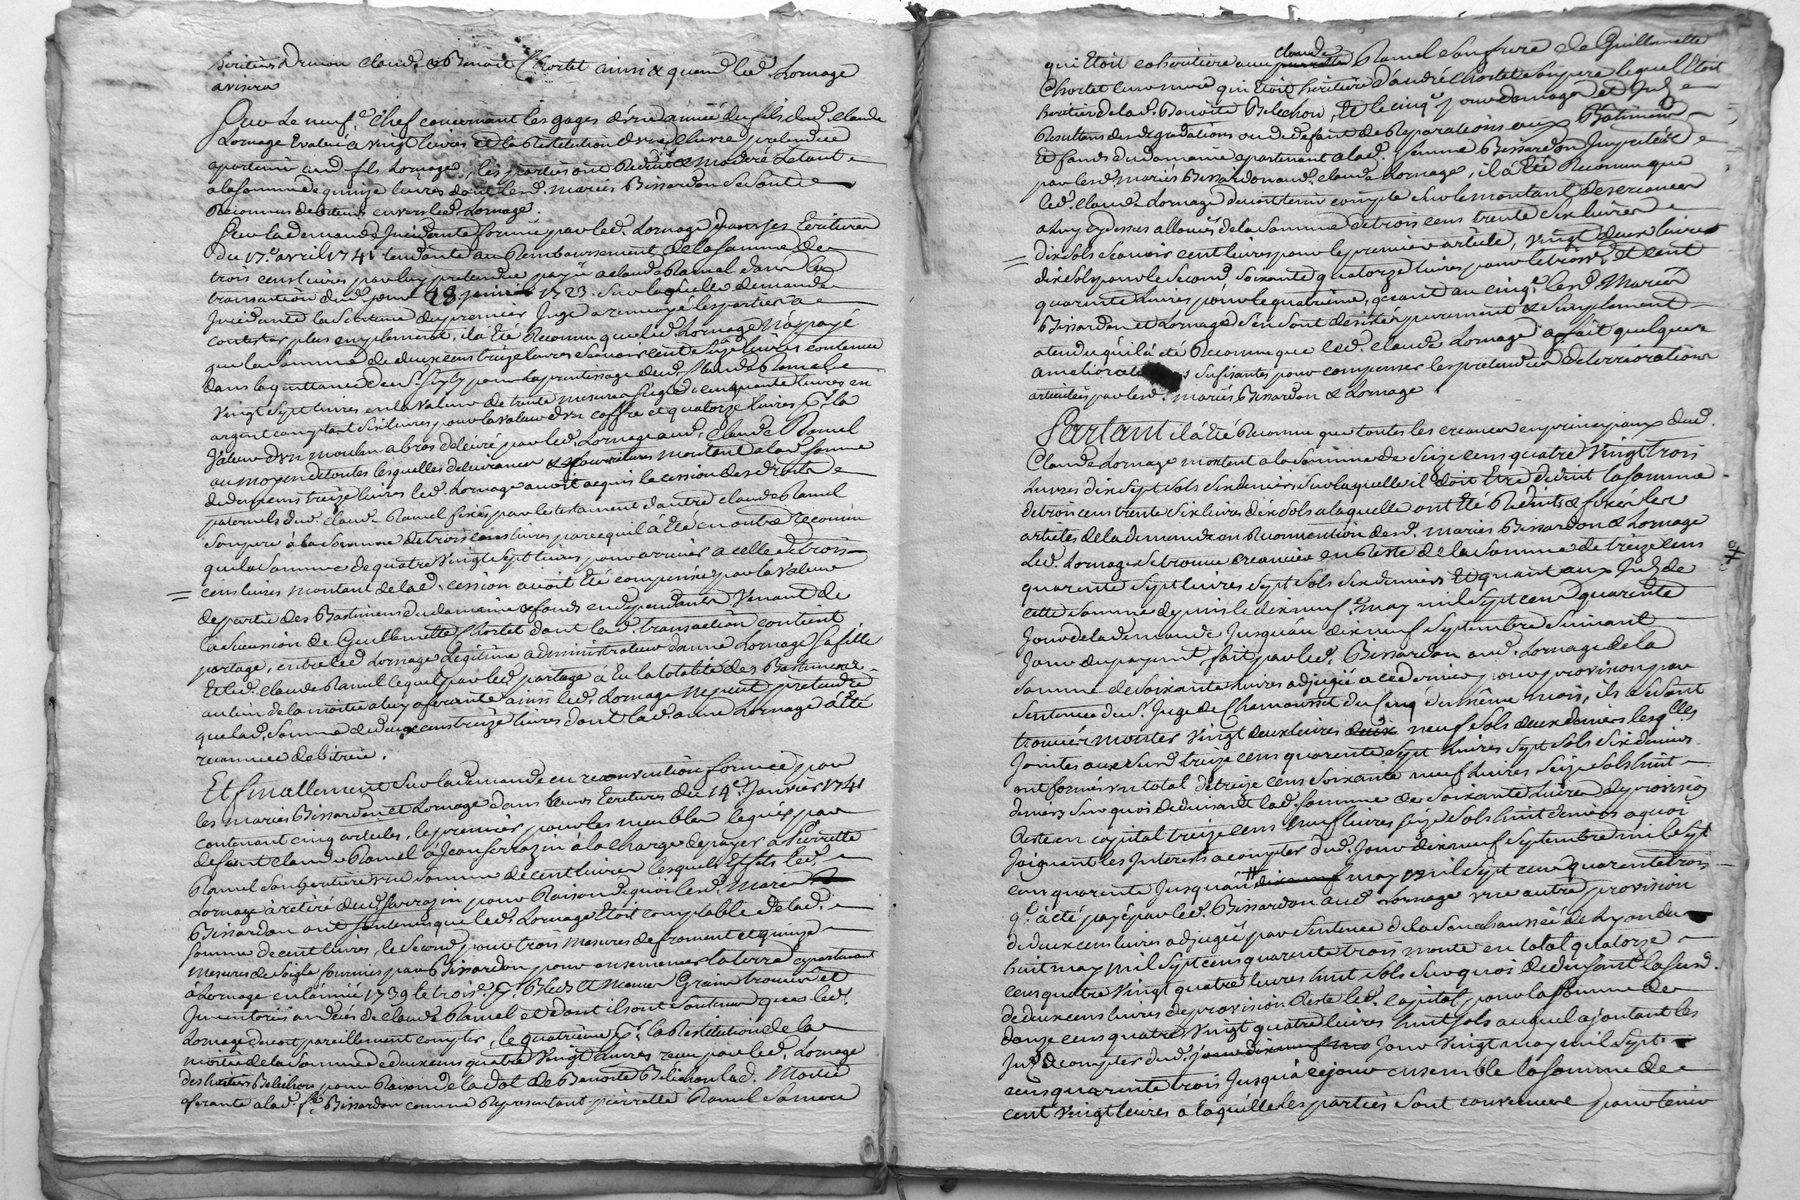 heritiers Dunion claude & Benoit Chortet ainsi & quand led. Lornage
avisera
Sur Le neuf.e Chef concernant les gages d'une année du fils dud. Claude
Lornage Evalué à vingt livres et la Restitution d'une chevre pretendüe
apartenir aud. fils Lornage, les parties ont Reduit & moderé Letout
a la somme de quinze livres dont lesd. mariés Bissardon se sont
Reconnus debiteurs envers led. Lornage.
Sur la demande Incidante formée par led. Lornage dans ses Ecritures
du 17.e avril 1741 tendante au Remboursement de la somme de
trois cens livres par luy pretendüe payée a claude Ramel dans la
transaction dud. jour 1723. Sur laquelle demande
Incidante la Sentence du premier Juge a renvoyé les parties a
contester plus amplement, il a été Reconnu que led. Lornage N'a payé
que la somme de deux cens treize livres scavoir cent seize livres contenues
dans la quittance du s.r pour l'aprentissage dud. Claude Ramel
Vingt sept livres en la valeur de trente mesures seigle cinquante livres en
argent comptant six livres pour la valeur d'un coffre et quatorze livres p.r la
Valeur d'un moulin a bras delivré par led. Lornage aud. Claude Ramel
au moyen de toutes lesquelles delivrances & fournitures montant a lad. somme
de deux cens treize livres led. Lornage auroit acquis la cession des droits
paternels dud. claude Ramel fixés par le testament d'autre claude Ramel
son pere à la somme de trois cens livres parce qu'il a été en outre reconnu
que la somme de quatre vingt sept livres pour arriver a celle de trois
cens livres montant de lad. cession avoit été compensée par la valeur
de partie des Bastimens du domaine & fonds en dependants Venant de
la Sucession de Guillemette Chortet dont lad. transaction contient
partage, entre led. Lornage Legitime administrateur d'anne Lornage sa fille
Et led. claude Ramel lequel par led. partage à Eu la totalité des Bastimens
au lieu de la moitié a luy aferante ainsi led. Lornage ne peut pretendre
que lad. somme de deux cens treize livres dont lad. anne Lornage a été
reconnüe debitrice.
Et finallement Sur la demande en reconvention formée par
les mariés Bissardon et Lornage dans leurs Ecritures du 14.e Janvier 1741
contenant cinq articles, le premier pour les meubles legués par
defunt claude Ramel à Jean Serrazin à la charge de payer a Pierrette
Ramel son heritiere une somme de cent livres lesquels Effets led.
Lornage à retiré dud. Serrazin pour Raison de quoi lesd. Mariés
Bissardon ont soutenus que led. Lornage Etoit comptable de lad.
somme de cent livres, le second pour trois mesures de froment et quinze
mesures de seigle fournies par Bissardon pour ensemencer la terre apartenant
à Lornage en l'année 1739 le trois.e p.r Bleds Et Menus Grains trouvés et
Inventoriés au decés de claude Ramel et dont ils ont soutenu que led.
Lornage devoit pareillement compter, le quatrieme p.r la Restitution de la
moitié de la somme de deux cens quatre vingt livres reçue par led. Lornage
des heritiers Belichon pour Raison de la dot de Benoite Belichon lad. Moitié
aferante a lad. f.e Bissardon comme Representant pierrette Ramel sa mere
qui Etoit cohéritiere avec claude Ramel son frere de Guillemette
Chortet leur mere qui Etoit heritiere d'andré chortet son pere lequel Etoit
heritier de lad. Benoite Belichon, Et le cinq.e pour domages et Int.s
Resultans des degradations ou du defaut de Reparations aux Batimens
Et fonds du domaine apartenant a lad. femme Bissardon Imputées
par lesd. mariés Bissardon aud. claude Lornage, il a été Reconnu que
led. claude Lornage devoit tenir compte sur le montant des creances
a luy cy dessus allouées de la somme de trois cens trente six livres
dix sols scavoir cent livres pour le premier article, vingt deux livres
dix sols pour le second, soixante quatorze livres pour le trois.e, Et cent
quarante livres pour le quatrieme, quant au cinq.e lesd. Mariés
Bissardon et Lornage s'en sont desistés purement & simplement
atendu qu'il à été Reconnu que led. claude Lornage a fait quelques
ameliorations sufisantes pour compenser les pretendües deteriorations
articulées par lesd. mariés Bissardon & Lornage.
Partant il à été Reconnu que toutes les creances en principaux dud.
Claude Lornage montent a la somme de seize cens quatre Vingt trois
Livres dix sept sols six deniers sur laquelle il doit être deduit la somme
de trois cens trente six livres dix sols a laquelle ont été Reduits & fixés les
articles de la demande en Reconvention desd. mariés Bissardon & Lornage
Led. Lornage se trouve creancier en Reste de la somme de treize cens
quarante sept livres sept sols six deniers Et quant aux Int.s de
cette somme depuis le dix neuf.e may mil sept cens quarante
Jour de la demande Jusqu'au dix neuf septembre suivant
Jour du payement fait par led. Bissardon aud. Lornage de la
somme de soixante livres adjugée a ce dernier pour provision par
sentence du s.r Juge de Chamousset du cinq du même mois, ils se sont
trouvés monter vingt deux livres neuf sols deux deniers lesquelles
Jointes aux susd. treize cens quarante sept livres sept sols six deniers
ont formés un total de treize cens soixante neuf livres seize sols huit
deniers sur quoi deduisant lad. somme de soixante livres de provision
Reste en capital treize cens neuf livres seize sols huit deniers a quoi
Joignant les Interests a compter dud. Jour dix neuf septembre mil sept
cens quarante Jusqu'au may mil sept cens quarante trois
q.e a été payé par led. Bissardon aud. Lornage une autre provision
de deux cens livres adjugée par sentence de la Senechaussée de Lyon du
huit may mil sept cens quarante trois monte en total quatorze
cens quatre vingt quatre livres huit sols sur quoi deduisant la susd.
de deux cens livres de provision Reste led. capital pour la somme de
douze cens quatre vingt quatre livres huit sols auquel ajoutant les
Int.s a compter dud. Jour Vingt may mil sept
cens quarante trois Jusqu'a ce jour ensemble la somme de
cent vingt livres a laquelle les parties sont convenües pour tenir